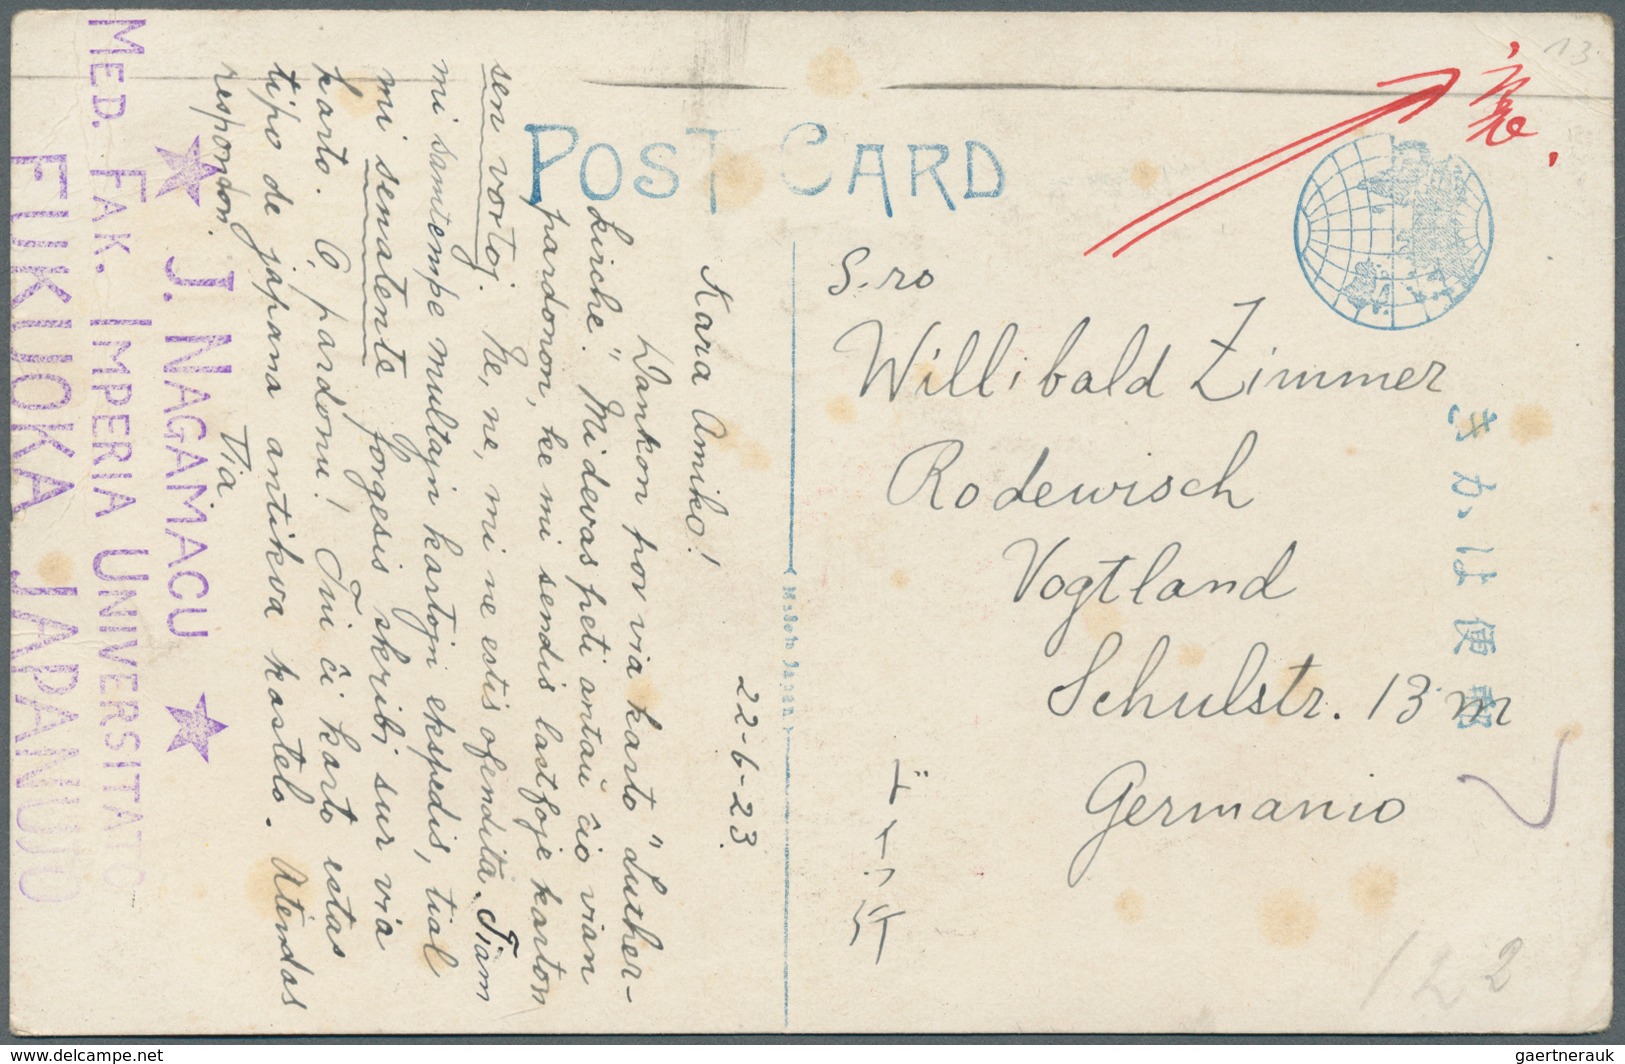 POST CARD
裏
13
Kara Amiko!
22-6-23.
Dankon por via karto "Luther-
kirche." Mi devas peti antaŭ ĉio vian
pardonon, ke mi sendis lastfoje karton
sen vortoj. Ne, ne, mi ne estis ofendita. Tiam
mi samtempe multajn kartojn ekspedis, tial
mi senatente forgesis skribi sur via
karto. Ho, pardonu! Tiu ĉi karto estas
tipo de japana antikva kastelo. Atendas
respondon.
Via
★ J. NAGAMACU ★
MED. FAK. IMPERIA UNIVERSITATO
FUKUOKA JAPANUJO
Made in Japan
S-ro
Willibald Zimmer
Rodewisch
Vogtland
Schulstr. 13 m
Germanio
ドイツ行
きかは便郵
122
gaertnerauk
www.delcampe.net